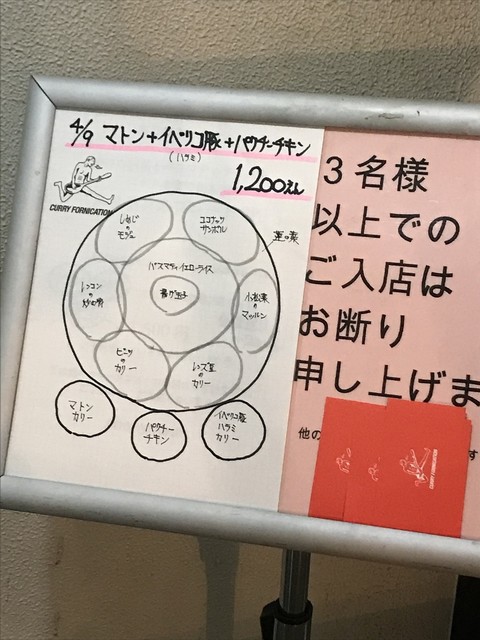 4/9 マトン+イベリコ豚+パクチーチキン
(ハラミ)
1,200えん
CURRY FORNICATION
しめじの
モジュ
ココナッツ
サンボル
バスマティイエローライス
レンコン
の
炒め物
揚げ玉子
小松菜
の
マッルン
ビーツ
の
カリー
レンズ豆
の
カリー
マトン
カリー
パクチー
チキン
イベリコ豚
ハラミ
カリー
3名様
以上での
ご入店は
お断り
申し上げま
他の
す
CURRY FORNICATION